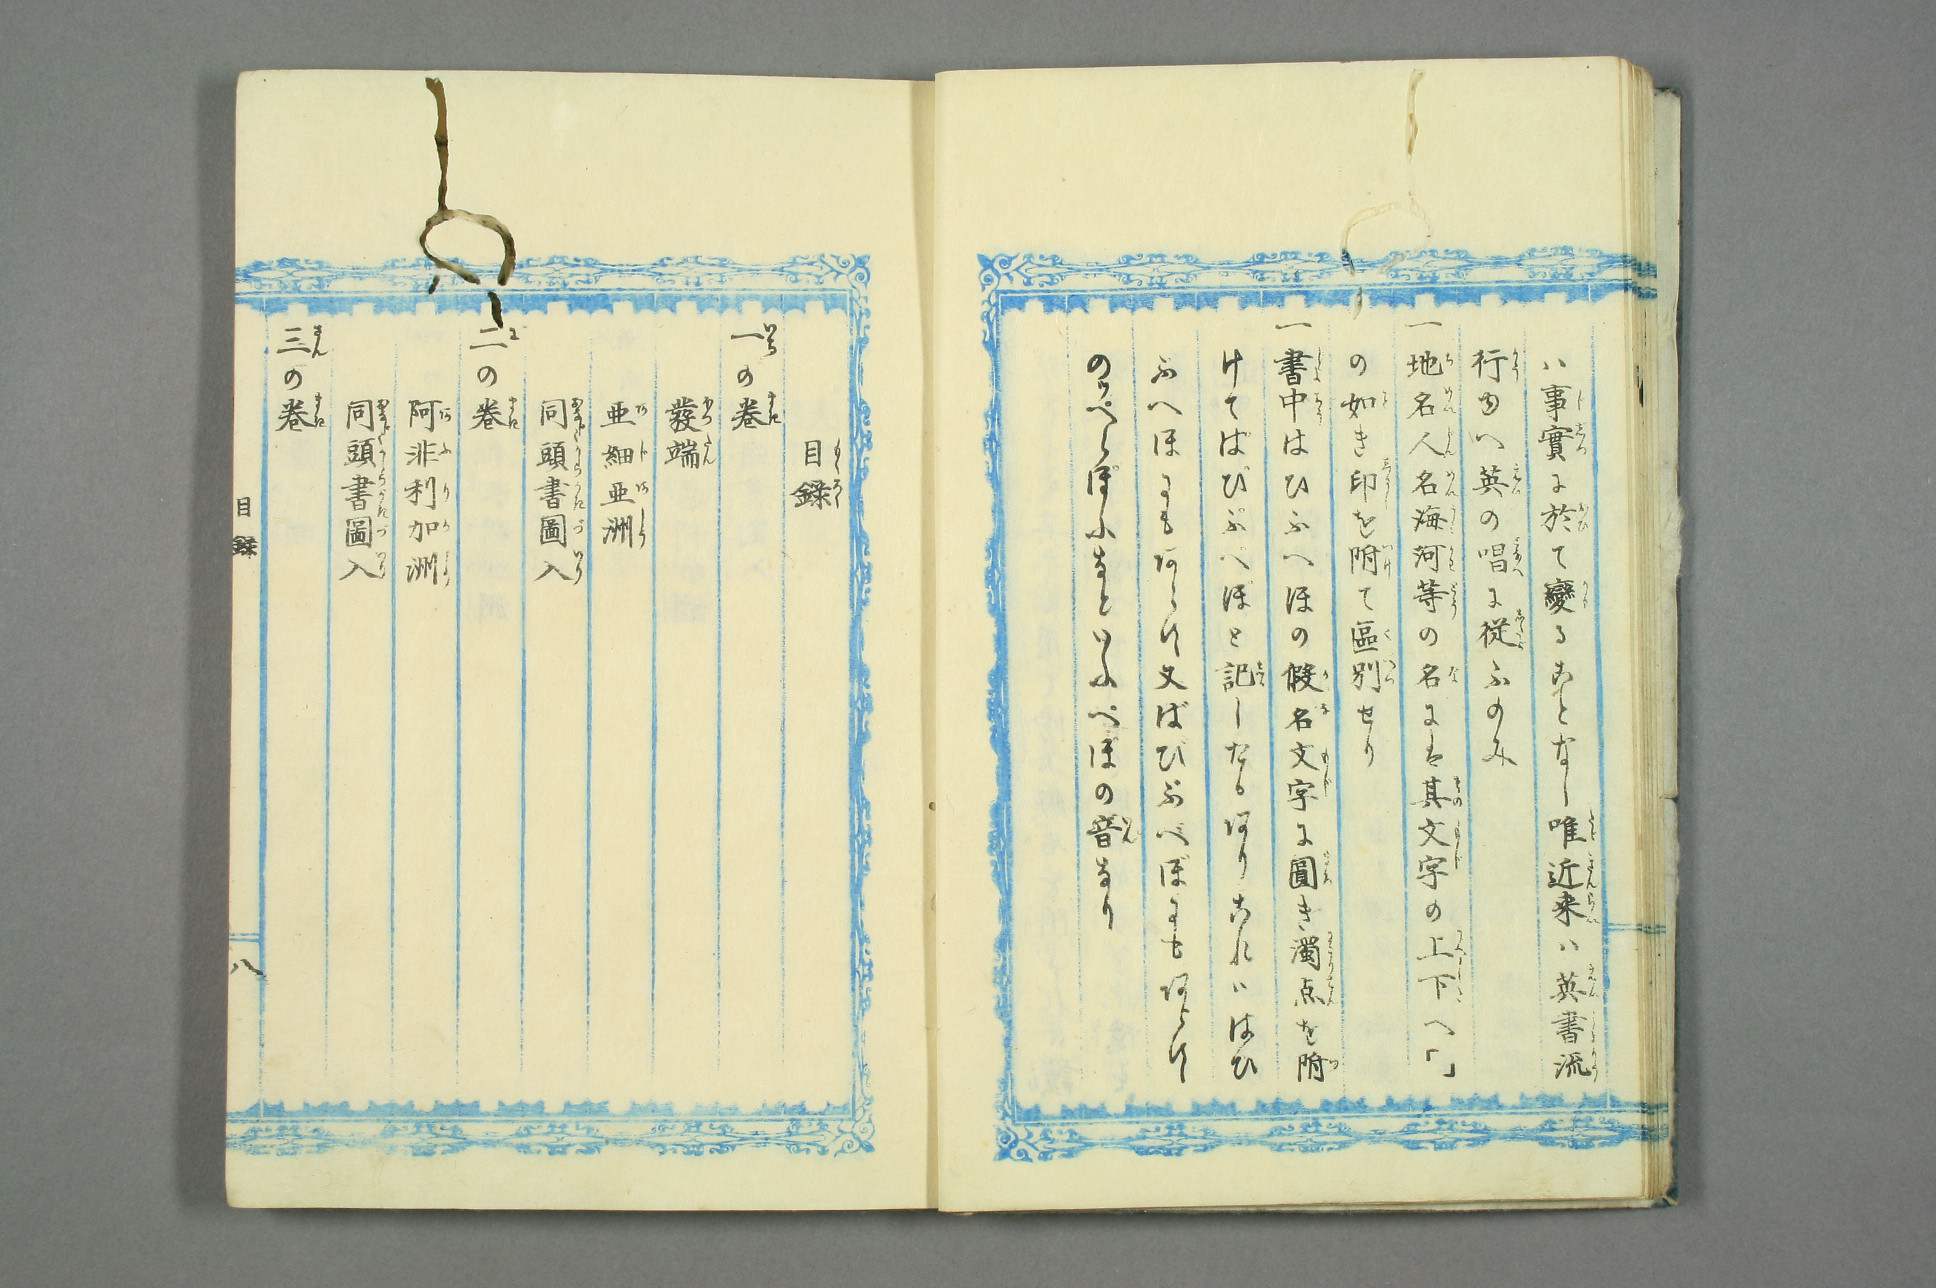 ハ事實に於て變ることなし唯近来ハ英書流
行ゆへ英の唱に従ふのみ
一地名人名海河等の名には其文字の上下へ「」
の如き印を附て區別せり
一書中はひふへほの假名文字に圓き濁点を附
けてぱぴぷぺぽと記したるありこれハはひ
ふへほにもあらず又ばびぶべぼにもあらず
音なり
目録
一の巻
發端
亜細亜洲
同頭書圖入
二の巻
阿非利加洲
同頭書圖入
三の巻
目録
八